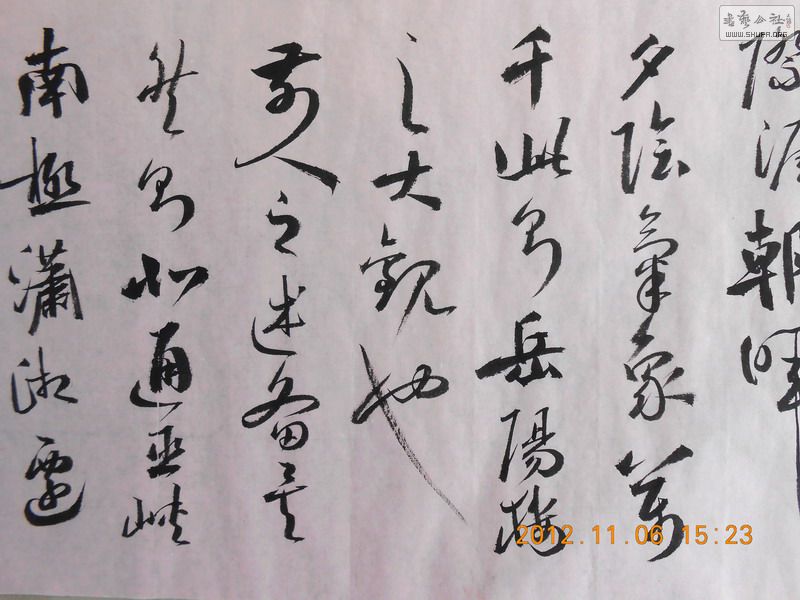 際涯朝暉
夕陰氣象萬
千此則岳陽樓
之大觀也
前人之述备矣
然則北通巫峽
南極瀟湘遷
書藝公社
WWW.SHUFA.ORG
2012.11.06 15:23